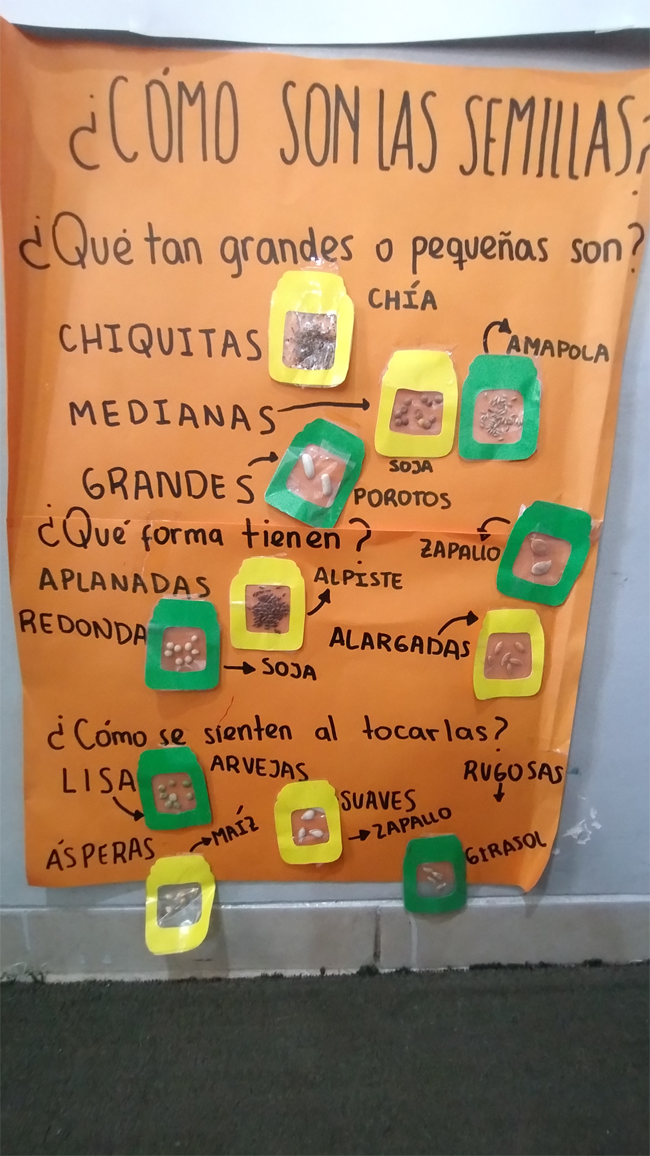 ¿CÓMO SON LAS SEMILLAS?
¿Qué tan grandes o pequeñas son?
CHIQUITAS
CHÍA
AMAPOLA
MEDIANAS
SOJA
GRANDES
POROTOS
¿Qué forma tienen?
ZAPALLO
APLANADAS
ALPISTE
REDONDA
SOJA
ALARGADAS
¿Cómo se sienten al tocarlas?
LISA
ARVEJAS
RUGOSAS
SUAVES
ZAPALLO
ÁSPERAS
MAÍZ
GIRASOL